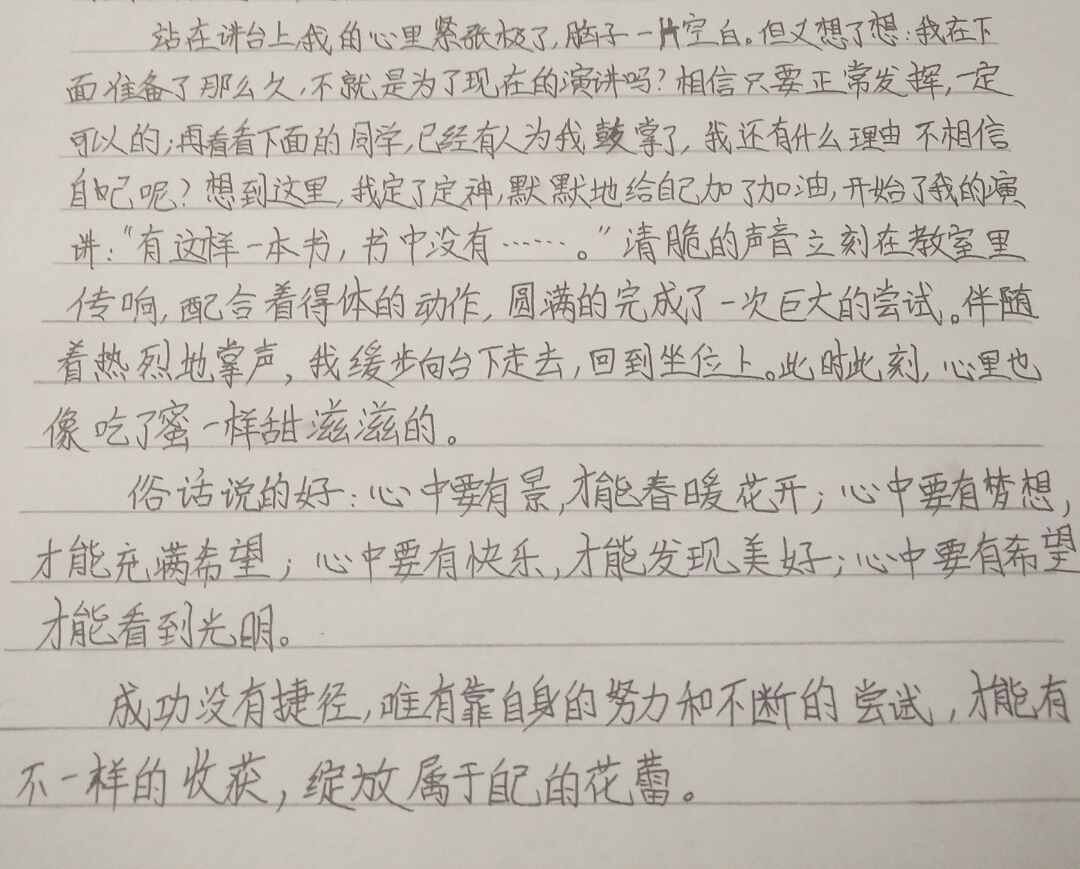 站在讲台上,我的心里紧张极了,脑子一片空白。但又想了想:我在下
面准备了那么久,不就是为了现在的演讲吗?相信只要正常发挥,一定
可以的;再看看下面的同学,已经有人为我鼓掌了,我还有什么理由不相信
自己呢?想到这里,我定了定神,默默地给自己加了加油,开始了我的演
讲:“有这样一本书,书中没有……。”清脆的声音立刻在教室里
传响,配合着得体的动作,圆满的完成了一次巨大的尝试。伴随
着热烈地掌声,我缓步向台下走去,回到坐位上。此时此刻,心里也
像吃了蜜一样甜滋滋的。
俗话说的好:心中要有景,才能春暖花开;心中要有梦想,
才能充满希望;心中要有快乐,才能发现美好;心中要有希望
才能看到光明。
成功没有捷径,唯有靠自身的努力和不断的尝试,才能有
不一样的收获,绽放属于自己的花蕾。